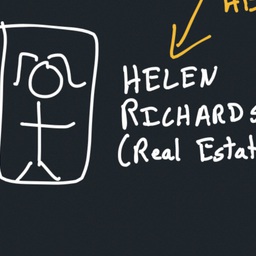 HELEN
RICHARDS
(Real Estat